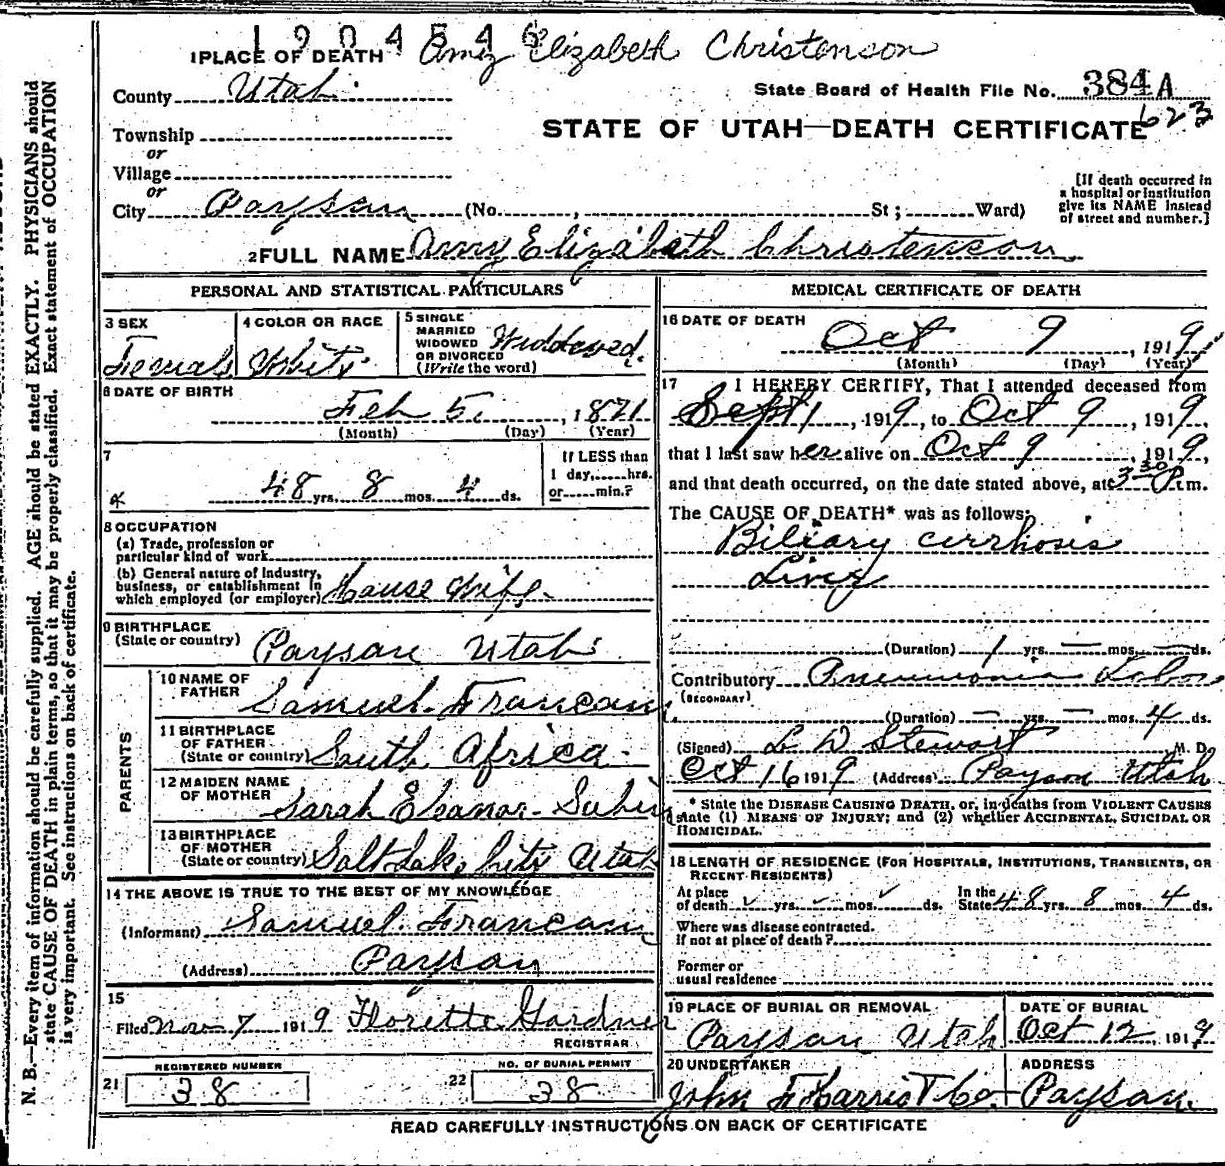 1904546
1 PLACE OF DEATH Amy Elizabeth Christenson
County Utah State Board of Health File No. 384 A
623
STATE OF UTAH—DEATH CERTIFICATE
Township
or
Village
or
City Payson (No. , St ; Ward)
[If death occurred in
a hospital or institution
give its NAME instead
of street and number.]
2 FULL NAME Amy Elizabeth Christenson
PERSONAL AND STATISTICAL PARTICULARS
3 SEX
Female
4 COLOR OR RACE
White
5 SINGLE
MARRIED
WIDOWED
OR DIVORCED
(Write the word)
Widowed.
6 DATE OF BIRTH
Feb 5, 1871
(Month) (Day) (Year)
7
48 yrs. 8 mos. 4 ds.
If LESS than
1 day, hrs.
or min.?
8 OCCUPATION
(a) Trade, profession or
particular kind of work
(b) General nature of Industry,
business, or establishment in
which employed (or employer) House Wife
9 BIRTHPLACE
(State or country) Payson Utah
PARENTS
10 NAME OF
FATHER Samuel Francom
11 BIRTHPLACE
OF FATHER
(State or country) South Africa
12 MAIDEN NAME
OF MOTHER Sarah Eleanor
13 BIRTHPLACE
OF MOTHER
(State or country) Salt Lake City Utah
14 THE ABOVE IS TRUE TO THE BEST OF MY KNOWLEDGE
(Informant) Samuel Francom
(Address) Payson
15
Filed Nov 7 1919 Florette Gardner
REGISTRAR
21 REGISTERED NUMBER
38
22 NO. OF BURIAL PERMIT
38
MEDICAL CERTIFICATE OF DEATH
16 DATE OF DEATH
Oct 9, 1919
(Month) (Day) (Year)
17 I HEREBY CERTIFY, That I attended deceased from
Sept 1, 1919, to Oct 9, 1919,
that I last saw her alive on Oct 9, 1919,
and that death occurred, on the date stated above, at 3 30 P.m.
The CAUSE OF DEATH* was as follows:
Biliary cirrhosis
Liver
(Duration) 1 yrs. — mos. — ds.
Contributory Pneumonia Lobar
(SECONDARY)
(Duration) — yrs. — mos. 4 ds.
(Signed) L D Stewart M. D.
Oct 16 1919 (Address) Payson Utah
* State the DISEASE CAUSING DEATH, or, in deaths from VIOLENT CAUSES
state (1) MEANS OF INJURY; and (2) whether ACCIDENTAL, SUICIDAL OR
HOMICIDAL.
18 LENGTH OF RESIDENCE (FOR HOSPITALS, INSTITUTIONS, TRANSIENTS, OR
RECENT RESIDENTS)
At place
of death yrs. mos. ds.
In the
State 48 yrs. 8 mos. 4 ds.
Where was disease contracted.
If not at place of death?
Former or
usual residence
19 PLACE OF BURIAL OR REMOVAL
Payson Utah
DATE OF BURIAL
Oct 12, 1919
20 UNDERTAKER
John F Harris
ADDRESS
Payson.
READ CAREFULLY INSTRUCTIONS ON BACK OF CERTIFICATE
N. B.—Every item of information should be carefully supplied. AGE should be stated EXACTLY. PHYSICIANS should
state CAUSE OF DEATH in plain terms, so that it may be properly classified. Exact statement of OCCUPATION
is very important. See instructions on back of certificate.